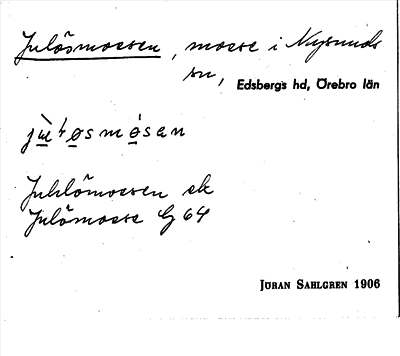 Julösmossen, mosse i Nysunds
sn, Edsbergs hd, Örebro län
Juhlömossen ek
Julömosse G 64
JÖRAN SAHLGREN 1906